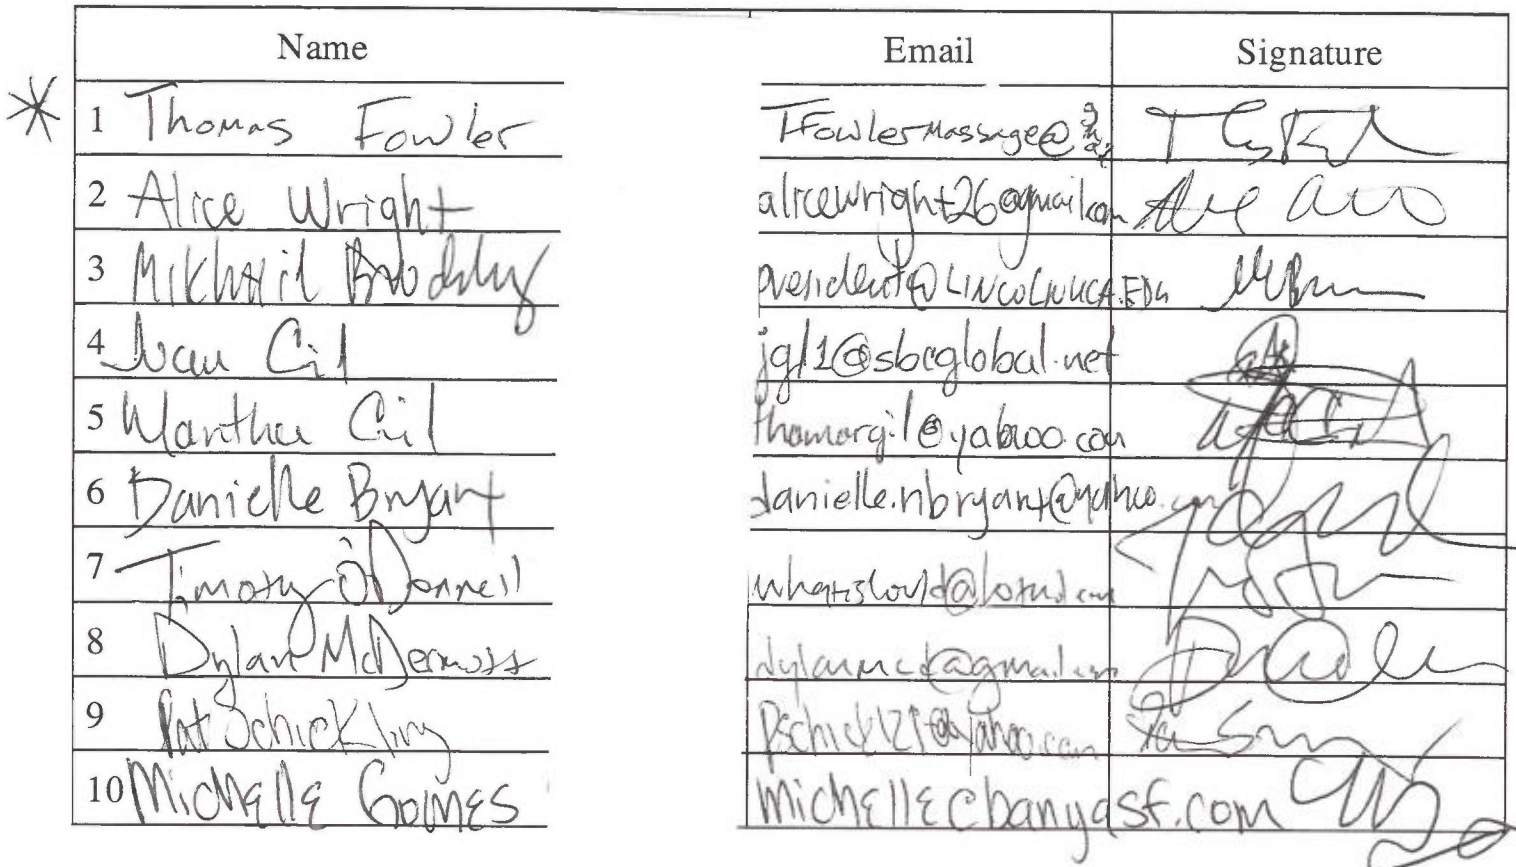 Name Email Signature
1 Thomas Fowler TFowlerMassage@
2 Alice Wright alicewright26@gmail.com
3 Mikhail Brodsky president@LINCOLNUCA.EDU
4 Juan Gil jgl1@sbcglobal.net
5 Martha Gil thamargil@yahoo.com
6 Danielle Bryant danielle.nbryant@yahoo.com
7 Timoty O'Donnell
8 Dylan McDermott dylanmcd@gmail.com
9 Pat Schickling
10 Michelle Gomes michelle@banyasf.com